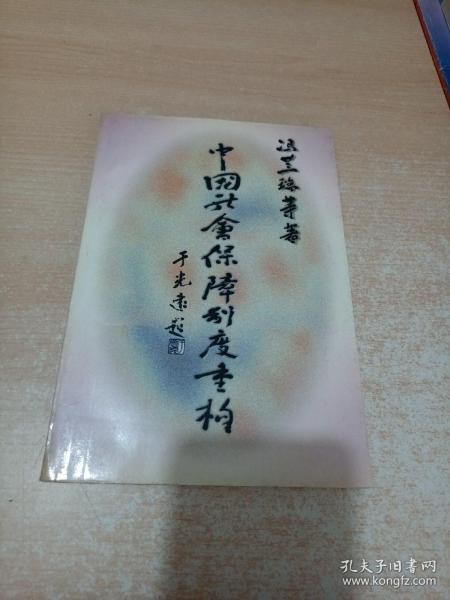 冯兰瑞等著
中国社會保障制度重构
于光遠题
孔夫子旧书网
www.kongfz.com